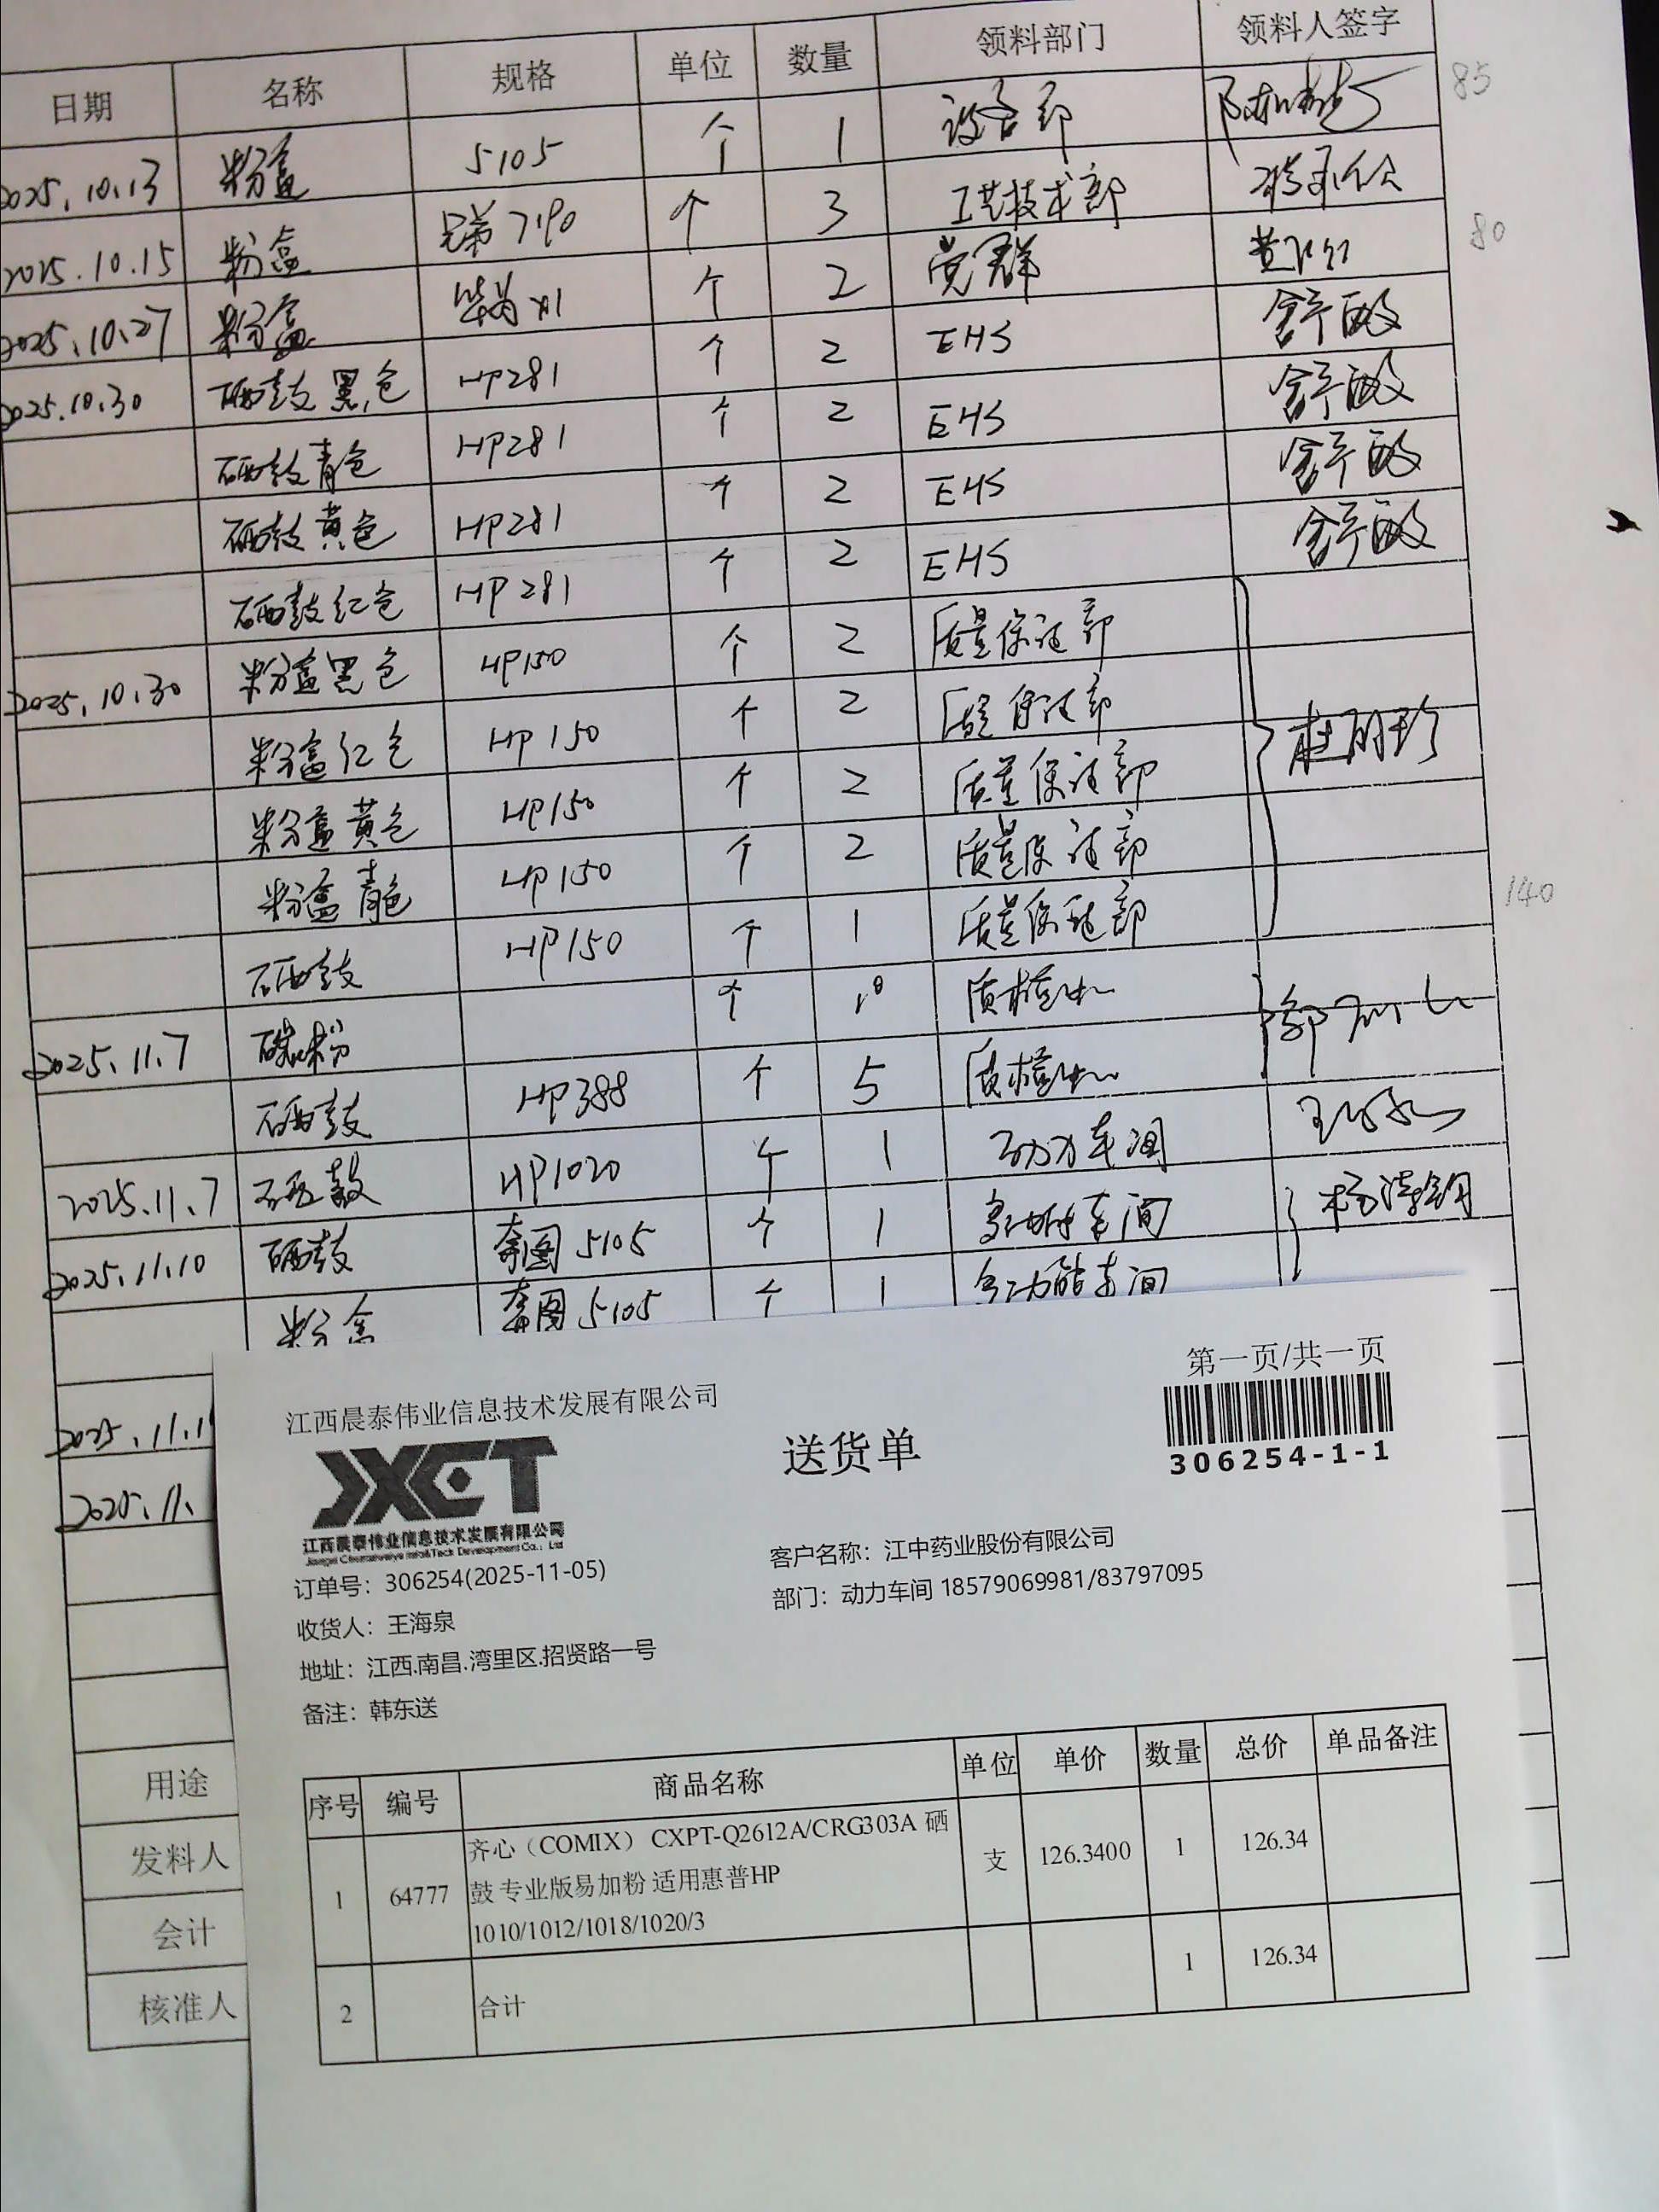 日期 名称 规格 单位 数量 领料部门 领料人签字
85
2025.10.13 粉盒 5105 个 1 设备部
2025.10.15 粉盒 兄弟7190 个 3 工艺技术部
80
2025.10.27 粉盒 个 2 党群
2025.10.30 硒鼓黑色 HP281 个 2 EHS 舒敏
硒鼓青色 HP281 个 2 EHS 舒敏
硒鼓黄色 HP281 个 2 EHS 舒敏
硒鼓红色 HP281 个 2 EHS 舒敏
2025.10.30 粉盒黑色 HP150 个 2 质量保证部
粉盒红色 HP150 个 2 质量保证部
粉盒黄色 HP150 个 2 质量保证部
粉盒青色 HP150 个 2 质量保证部
硒鼓 HP150 个 1 质量保证部
140
2025.11.7 碳粉 个 质检中心
硒鼓 HP388 个 5 质检中心
2025.11.7 硒鼓 HP1020 个 1 动力车间
2025.11.10 硒鼓 奔图5105 个 1 多功能车间
粉盒 奔图5105 个 1 多功能车间
2025.11.1
2025.11.
用途
发料人
会计
核准人
第一页/共一页
江西晨泰伟业信息技术发展有限公司
JXCT
送货单
306254-1-1
江西晨泰伟业信息技术发展有限公司
Jiangxi Chentaiweiye Info&Tech Development Co., Ltd
订单号：306254(2025-11-05)
客户名称：江中药业股份有限公司
收货人：王海泉
部门：动力车间 18579069981/83797095
地址：江西.南昌.湾里区.招贤路一号
备注：韩东送
序号 编号 商品名称 单位 单价 数量 总价 单品备注
1 64777 齐心（COMIX） CXPT-Q2612A/CRG303A 硒 支 126.3400 1 126.34
鼓 专业版易加粉 适用惠普HP
1010/1012/1018/1020/3
2 合计 1 126.34